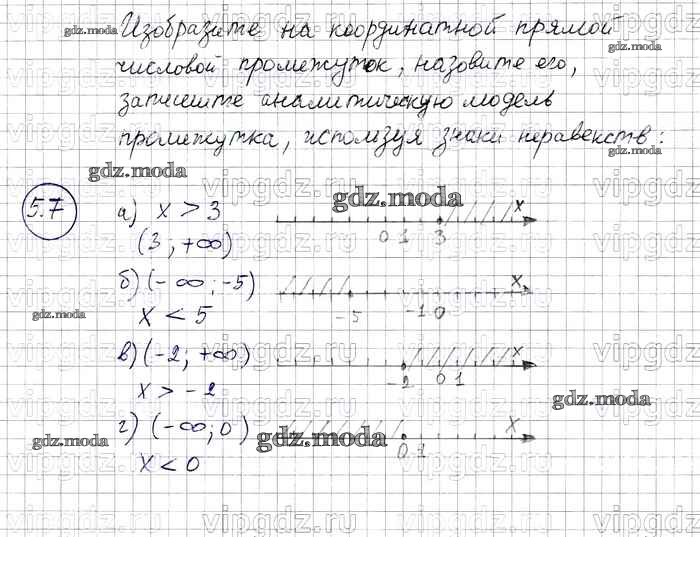 Изобразите на координатной прямой
числовой промежуток, назовите его,
запишите аналитическую модель
промежутка, используя знаки неравенств:
gdz.moda
gdz.moda
gdz.moda
gdz.moda
5.7
а) x > 3
gdz.moda
x
0 1 3
(3; +∞)
б) (-∞; -5)
x
-5 -1 0
gdz.moda
x < 5
в) (-2; +∞)
x
-2 0 1
x > -2
gdz.moda
г) (-∞; 0)
gdz.moda
gdz.moda
x
0 1
x < 0
vipgdz.ru